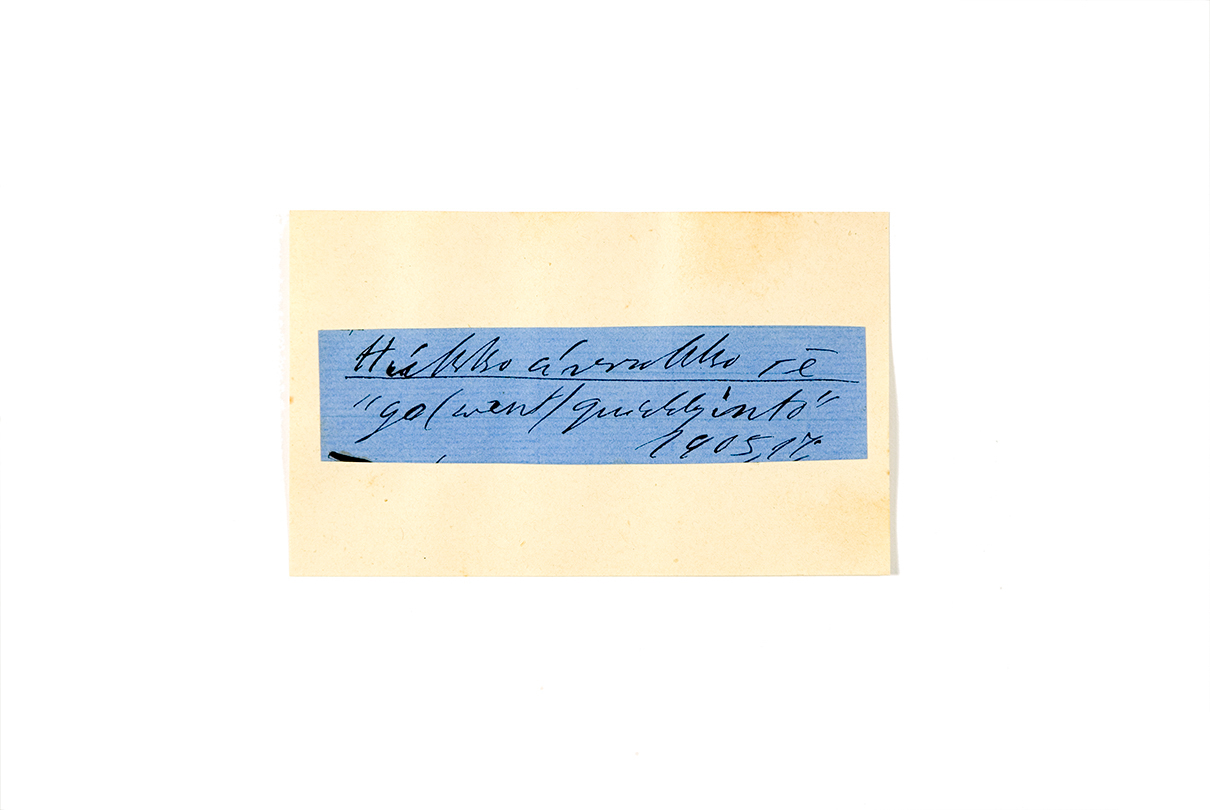 Hákko árrukko rē
"go(went) quickly into"
1905,17.